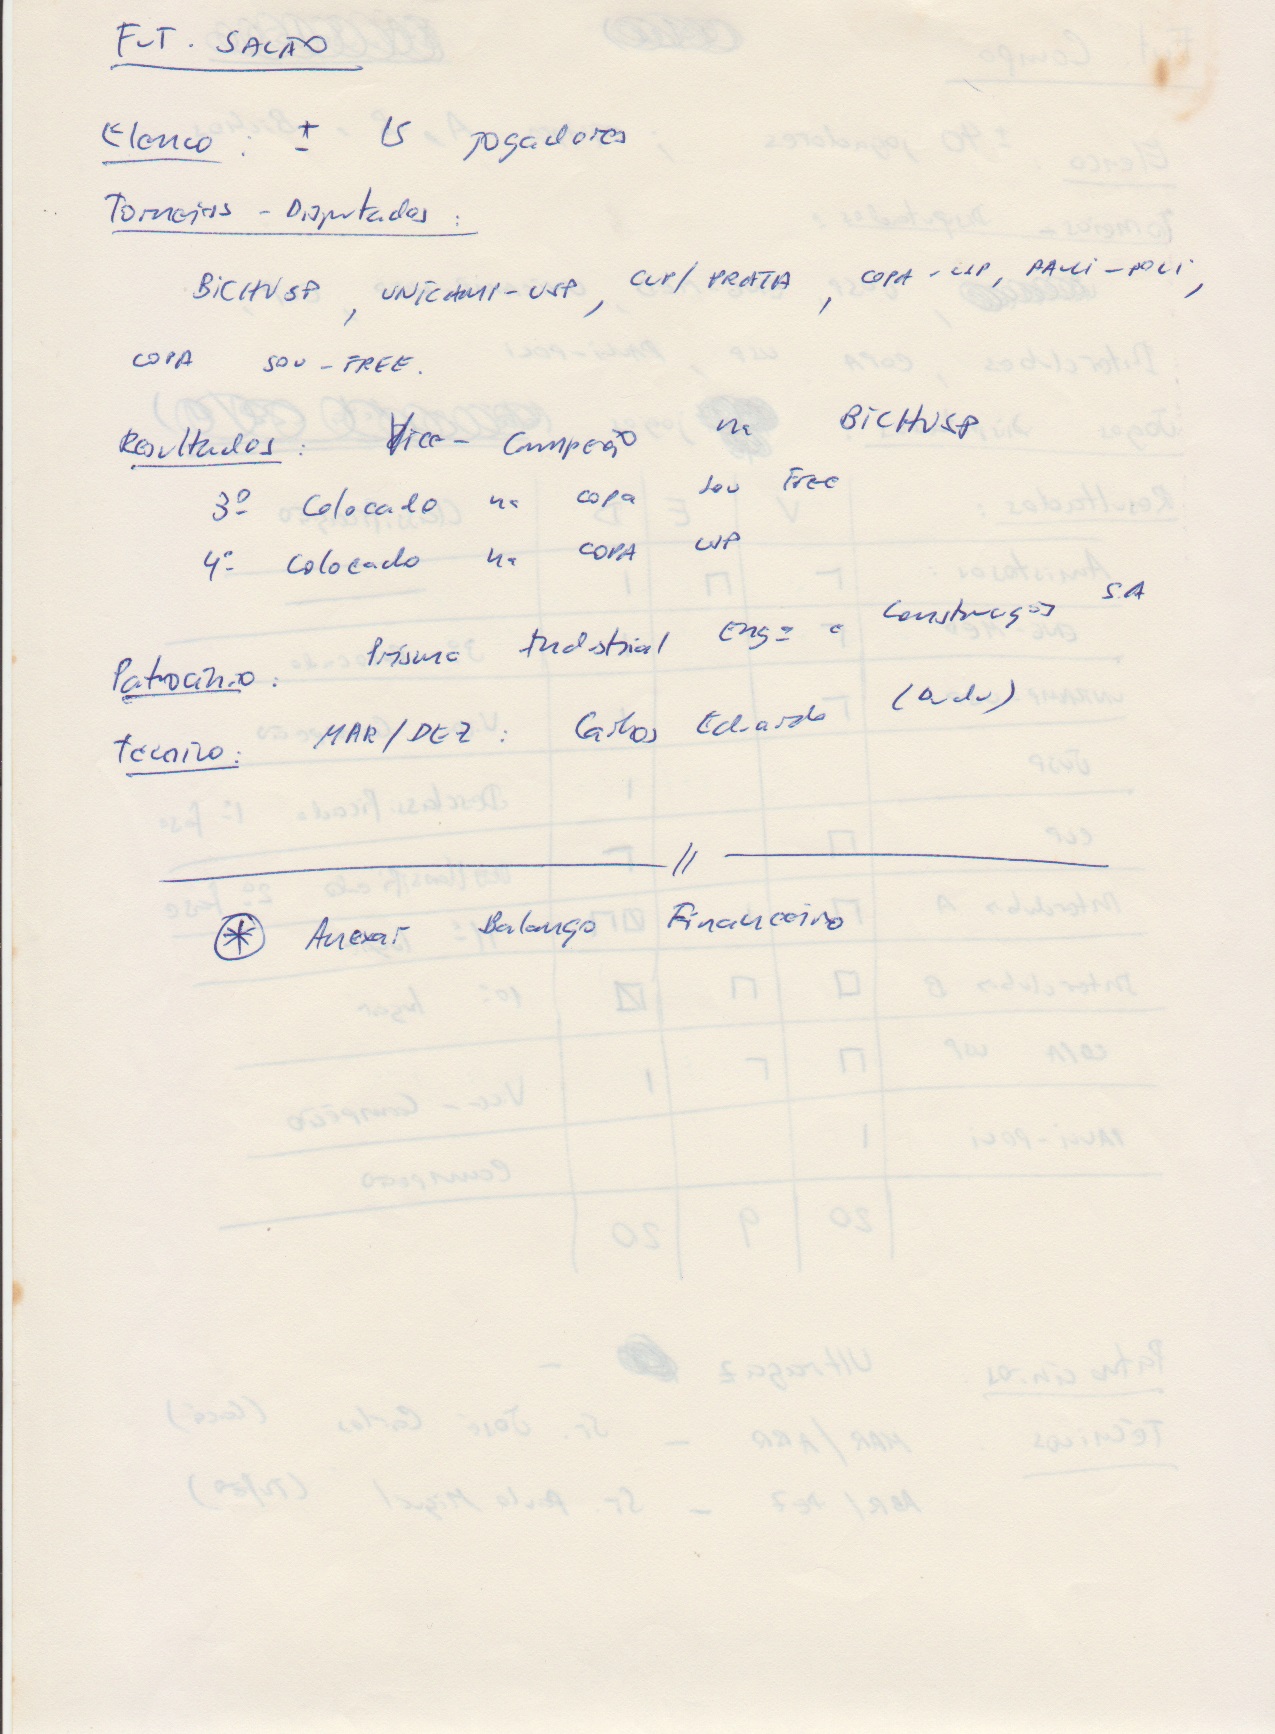 FUT. SALÃO
Elenco : ± 15 jogadores
Torneios - Disputados :
BICHUSP, UNICAMP-USP, CUP/PRATA, COPA-USP, PAULI-POLI,
COPA SOU-FREE.
Resultados : Vice-Campeão na BICHUSP
3º Colocado na copa sou Free
4º Colocado na COPA USP
Patrocínio : Prisma Industrial Engª e Construções SA
Técnico : MAR/DEZ : Carlos Eduardo (Dudu)
//
* Anexar Balanço Financeiro